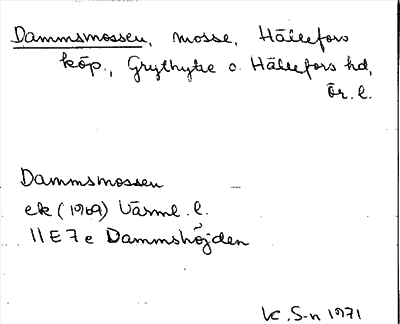 Dammsmossen, mosse, Hällefors
köp., Grythytte o. Hällefors hd,
Ör. l.
Dammsmossen
ek (1969) Värml. l.
11 E 7 e Dammshöjden
K. S-n 1971